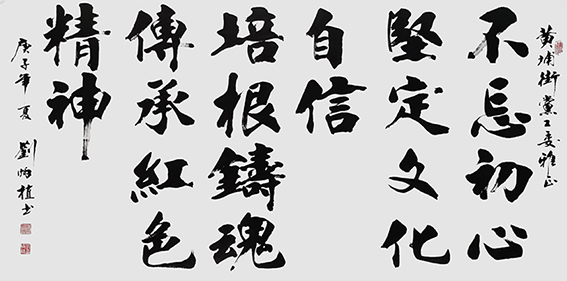 黄埔街黨工委雅正
不忘初心
堅定文化
自信
培根鑄魂
傳承紅色
精神
庚子年夏 劉植书